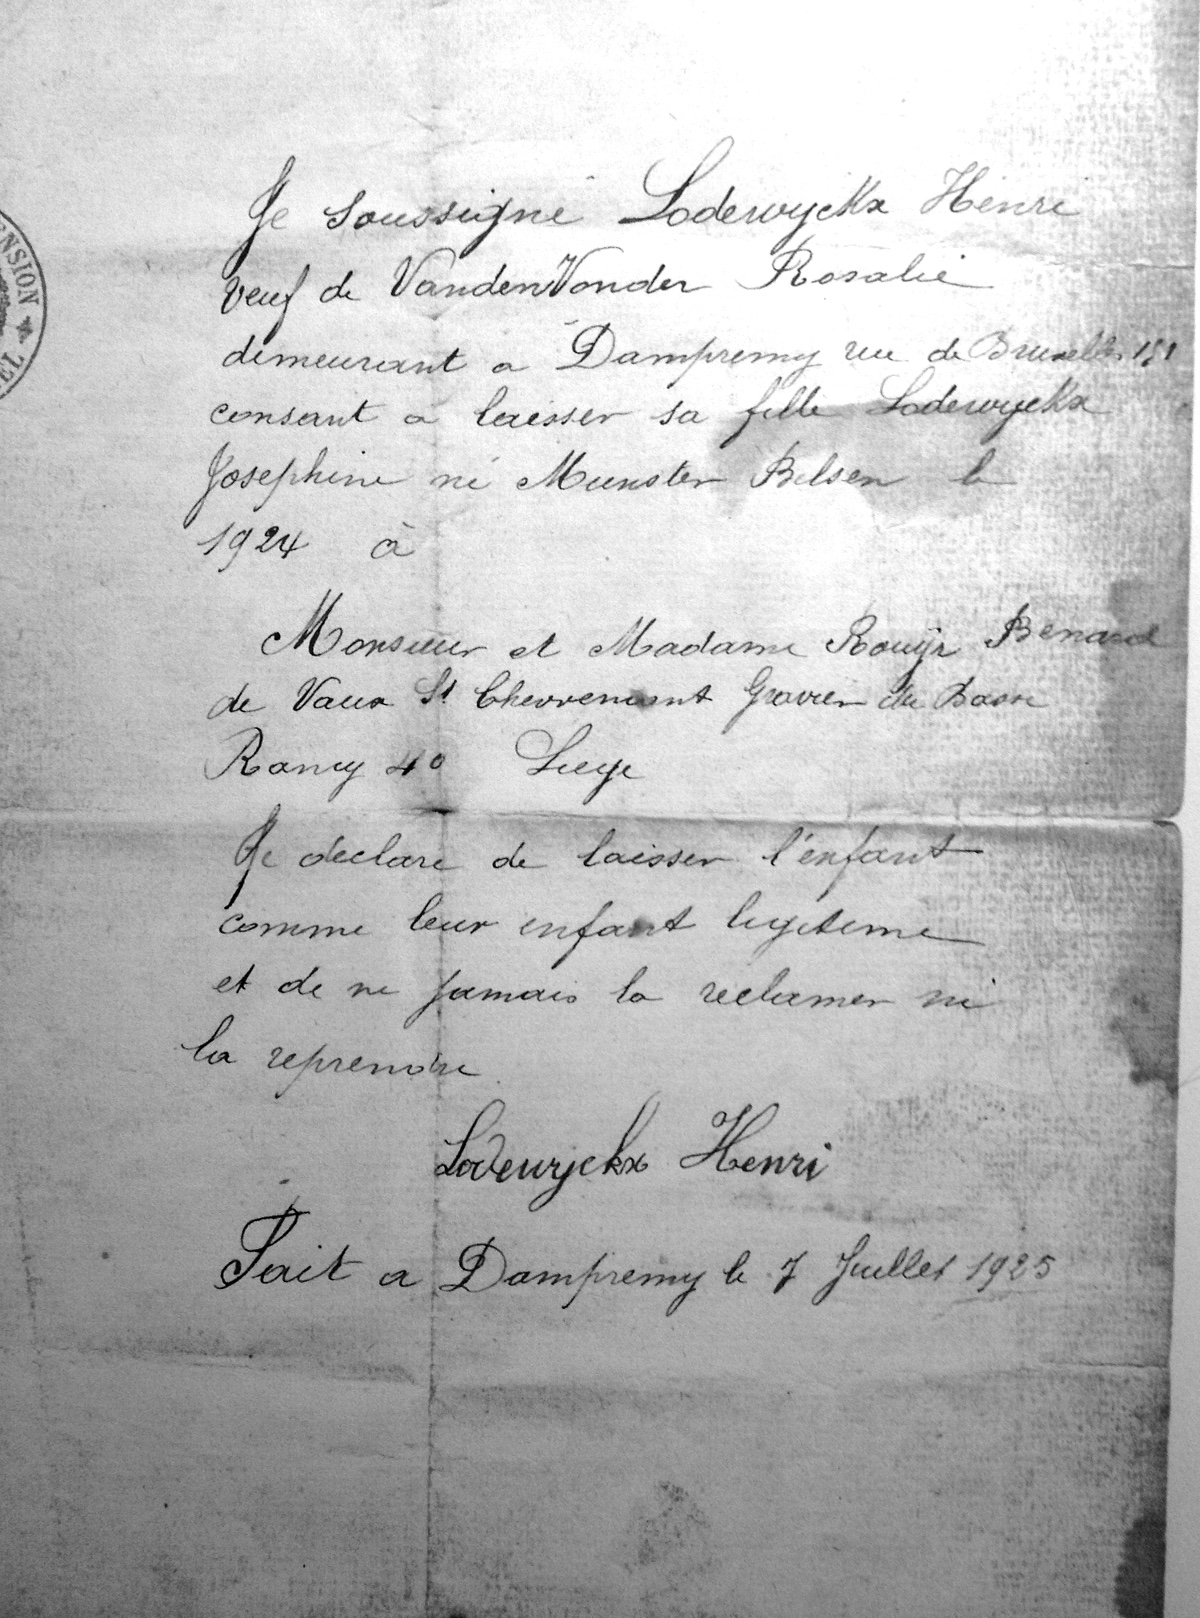 NSION
EL
Je soussigné Lodewyckx Henri
veuf de VandenVonder Rosalie
demeurant a Dampremy rue de Bruxelles 151
consant a laisser sa fille Lodewyckx
Josephine né Munster Belsen le
1924 à
Monsieur et Madame Rouÿr Benard
de Vaux St Chevremont Gravier du Basse
Rancy 40 Liege
Je declare de laisser l'enfant
comme leur enfant legiteme
et de ne jamais la reclamer ni
la reprendre
Lodewyckx Henri
Fait a Dampremy le 7 Juillet 1925